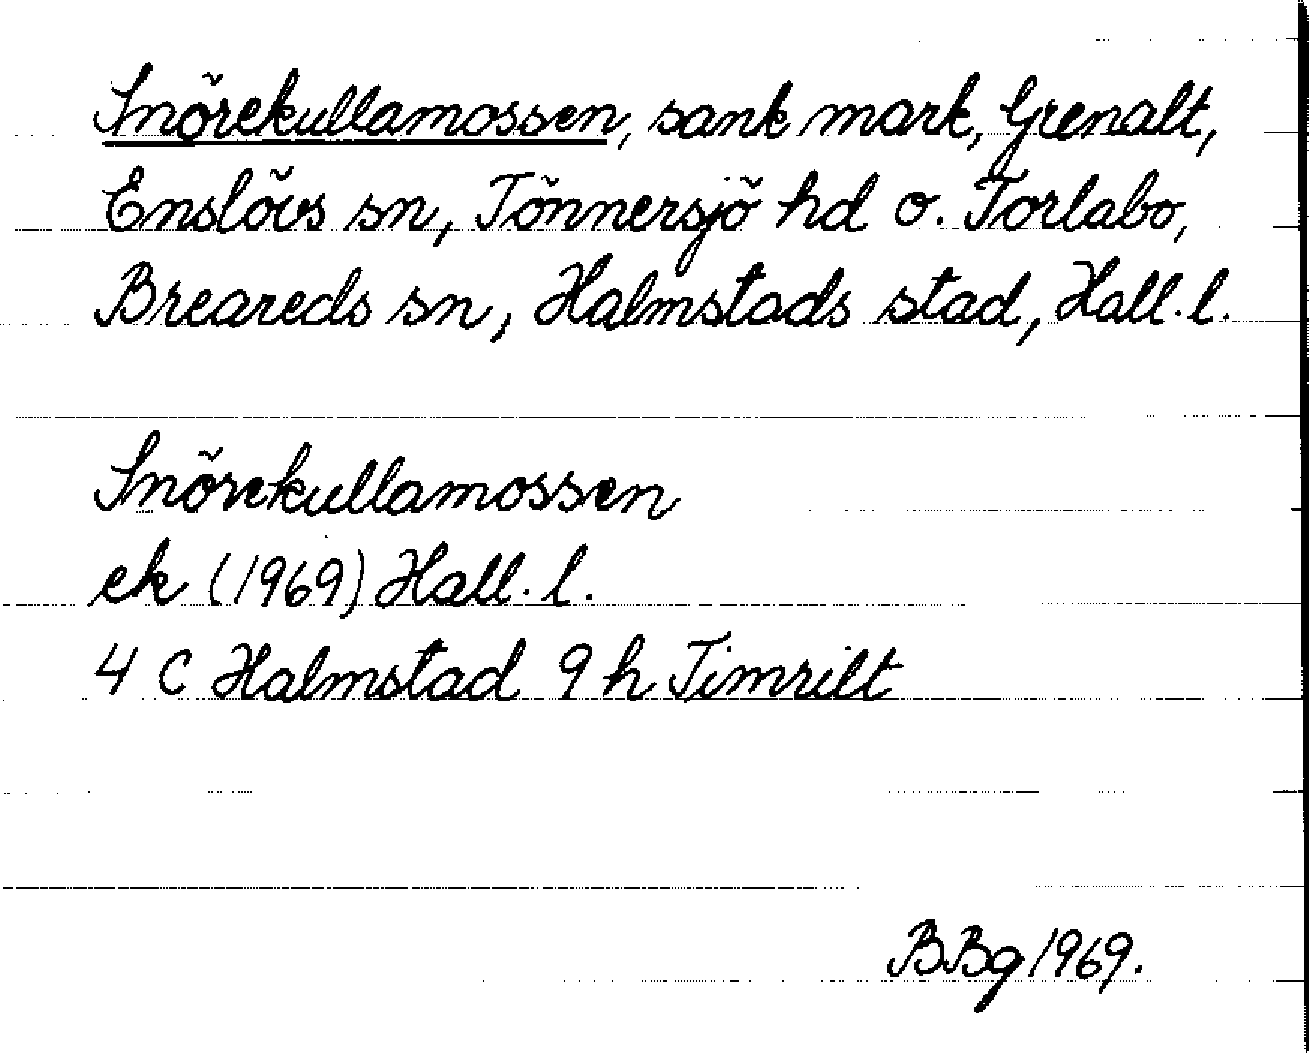 Snörekullamossen, sank mark, Grenalt,
Enslövs sn, Tönnersjö hd o. Torlabo,
Breareds sn, Halmstads stad, Hall. l.
Snörekullamossen
ek (1969) Hall. l.
4 C Halmstad 9 h Timrilt
BBg 1969.